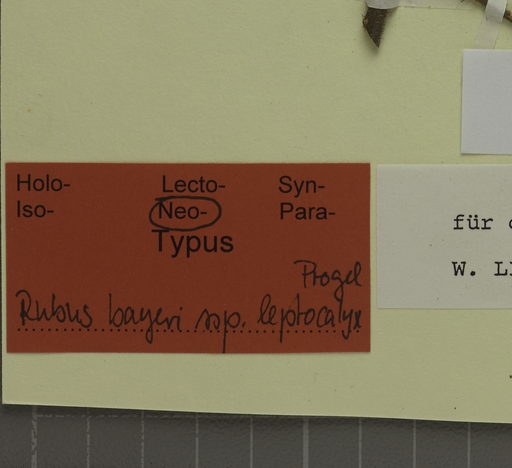 Holo- Lecto- Syn-
Iso- Neo- Para-
Typus
Progel
Rubus bayeri ssp. leptocalyx
für
W. L